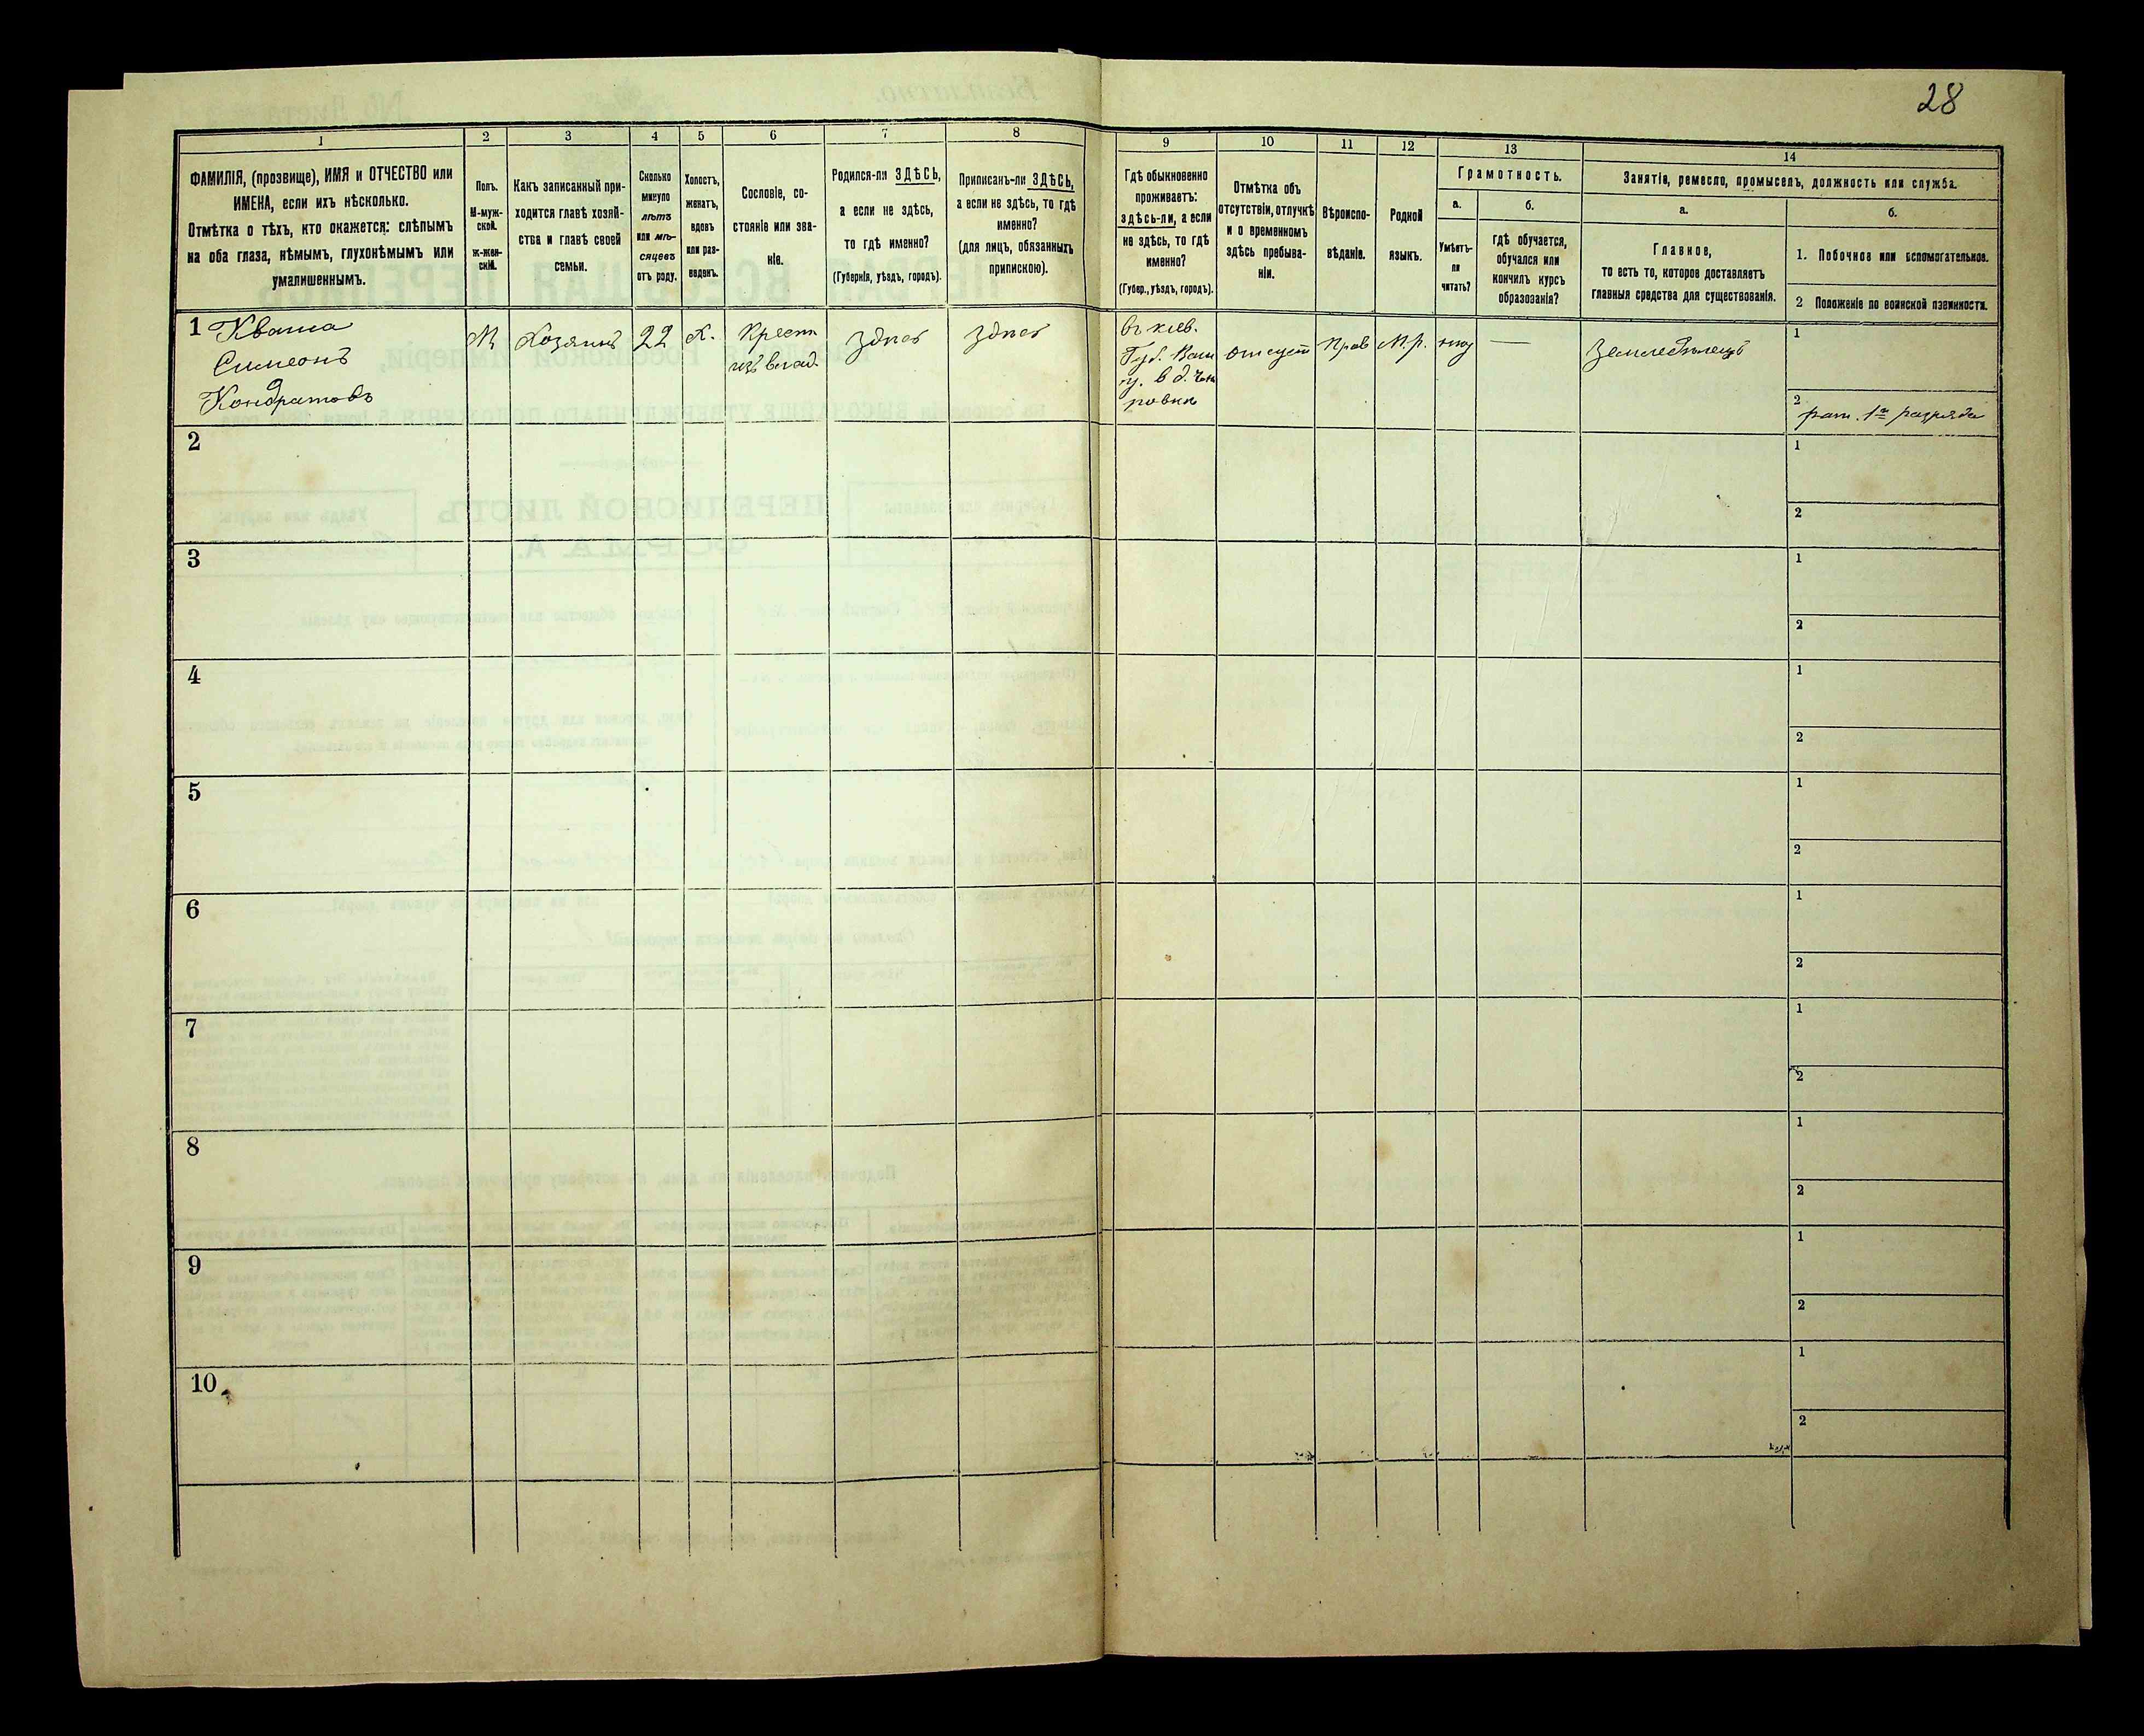 28
1
ФАМИЛІЯ, (прозвище), ИМЯ и ОТЧЕСТВО или
ИМЕНА, если ихъ нѣсколько.
Отмѣтка о тѣхъ, кто окажется: слѣпымъ
на оба глаза, нѣмымъ, глухонѣмымъ или
умалишеннымъ.
2
Полъ.
М-муж-
ской.
ж-жен-
скій.
3
Какъ записанный при-
ходится главѣ хозяй-
ства и главѣ своей
семьи.
4
Сколько
минуло
лѣтъ
или мѣ-
сяцевъ
отъ роду.
5
Холостъ,
женатъ,
вдовъ
или раз-
веденъ.
6
Сословіе, со-
стояніе или зва-
ніе.
7
Родился-ли ЗДѢСЬ,
а если не здѣсь,
то гдѣ именно?
(Губернія, уѣздъ, городъ).
8
Приписанъ-ли ЗДѢСЬ,
а если не здѣсь, то гдѣ
именно?
(для лицъ, обязанныхъ
припискою).
9
Гдѣ обыкновенно
проживаетъ:
здѣсь-ли, а если
не здѣсь, то гдѣ
именно?
(Губер., уѣздъ, городъ).
10
Отмѣтка объ
отсутствіи, отлучкѣ
и о временномъ
здѣсь пребыва-
ніи.
11
Вѣроиспо-
вѣданіе.
12
Родной
языкъ.
13
Грамотность.
а.
Умѣетъ-
ли
читать?
б.
гдѣ обучается,
обучался или
кончилъ курсъ
образозанія?
14
Занятіе, ремесло, промыселъ, должность или служба.
а.
Главное,
то есть то, которое доставляетъ
главныя средства для существованія.
б.
1. Побочное или вспомогательное.
2 Положеніе по воинской повинности.
1 Кваша
Симеонъ
Кондратовъ
М
Хозяинъ
22
Х.
Крест
изъ влад.
здѣсь
здѣсь
въ кіев.
Губ.
у. в д.
ровка
отсут
Прав
М.р.
—
Земледѣлецъ
1
2
рат. 1го разряда
2
1
2
3
1
2
4
1
2
5
1
2
6
1
2
7
1
2
8
1
2
9
1
2
10
1
2